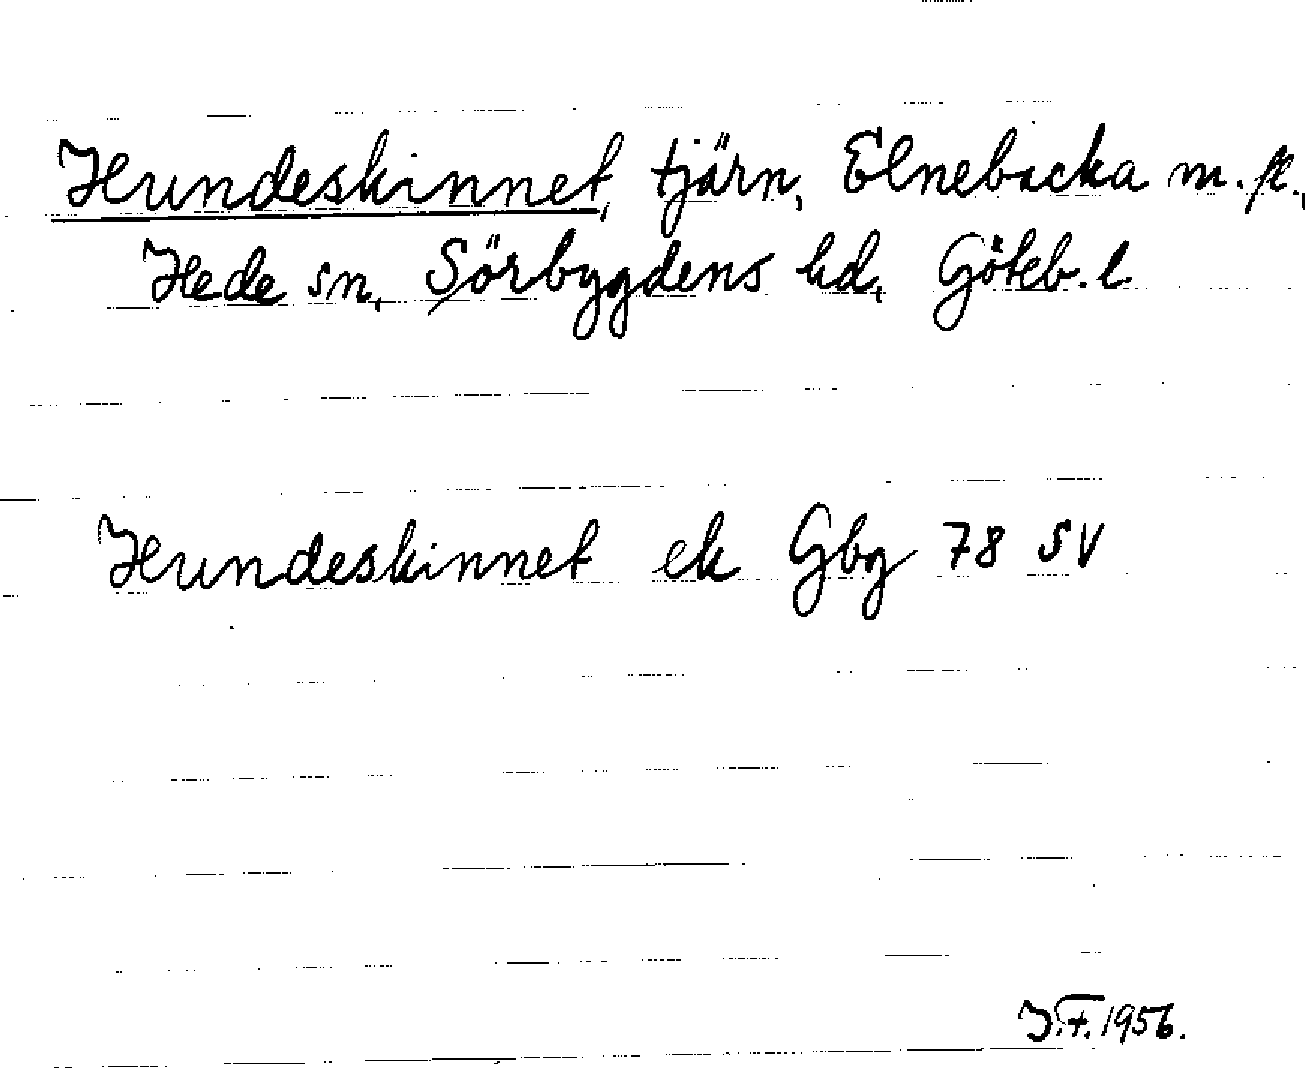 Hundeskinnet, tjärn, Elnebacka m.fl.,
Hede sn, Sörbygdens hd, Göteb. l
Hundeskinnet ek Gbg 78 SV
J.F. 1956.